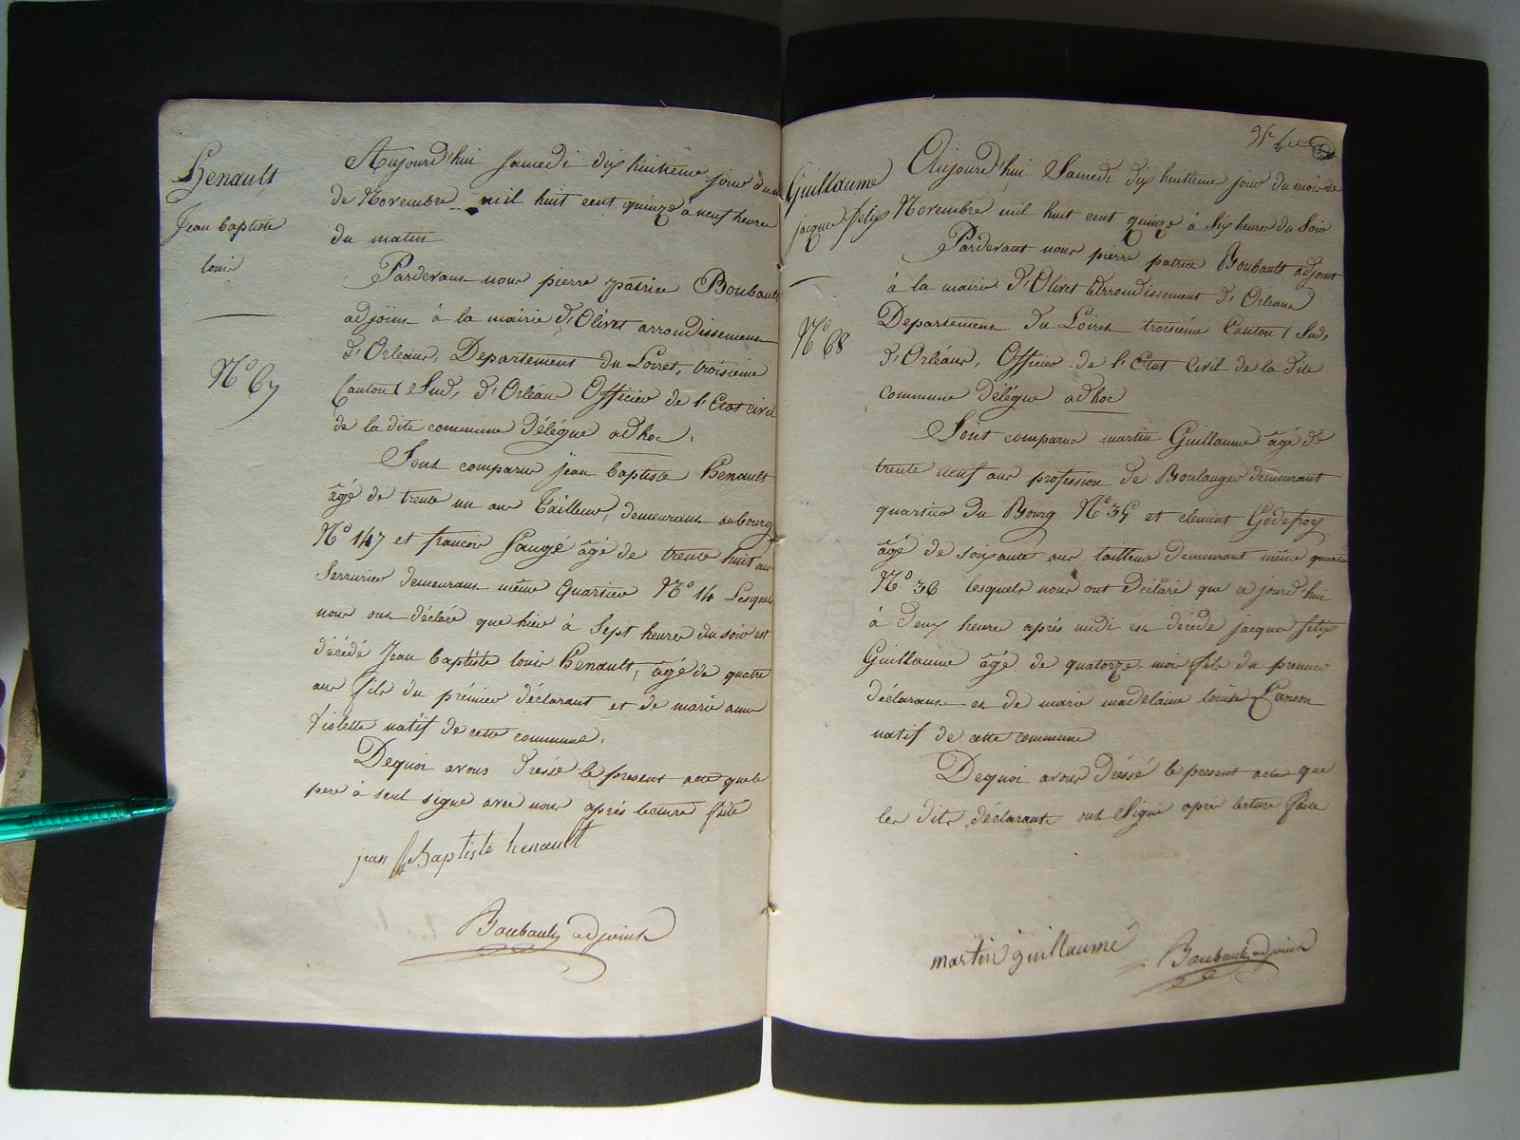 Henault
Jean baptiste
louis
N° 67
Aujourd'hui Samedi dix huitieme jour du mois
de Novembre mil huit cent quinze à neuf heures
du matin
Pardevant nous pierre patrice Boubault
adjoint à la mairie d'Olivet arrondissement
d'Orléans, Departement du Loiret, troisieme
Canton (Sud, d'Orléans Officier de l'Etat civil
de la dite commune délégué ad hoc.
Sont comparus jean baptiste Henault
âgé de trente un ans Tailleur, demeurant au bourg
N° 147 et francois Saugé âgé de trente huit ans
Serrurier demeurant même Quartier N° 14 Lesquels
nous ont déclaré que hier à Sept heures du soir est
décédé Jean baptiste louis Henault, âgé de quatre
ans fils du prémier déclarant et de marie anne
Violette natif de cette commune.
Dequoi avons dressé le present acte que le
pere à seul signé avec nous après lecture faite
jean Baptiste henault
Boubault adjoint
Guillaume
jacque felix
N° 68
Aujourd'hui Samedi dix huitieme jour du mois de
Novembre mil huit cent quinze à Six heures du Soir
Pardevant nous pierre patrice Boubault adjoint
à la mairie d'Olivet Arrondissement d'Orléans
Departement du Loiret troisieme Canton (Sud,
d'Orléans, Officier de l'Etat Civil de la dite
commune délégué ad hoc
Sont comparus martin Guillaume âgé de
trente neuf ans profession de Boulanger demeurant
quartier du Bourg N° 35 et clement Godefroy
âgé de soixante ans tailleur demeurant même quartier
N° 36 lesquels nous ont déclaré que ajourd'hui
à deux heures après midi est décédé jacque felix
Guillaume âgé de quatorze mois fils du premier
déclarant et de marie madelaine louise Lanson
natif de cette commune
Dequoi avons dréssé le present acte que
les dits déclarants ont signé après lecture faite
martin guillaume Boubault adjoint